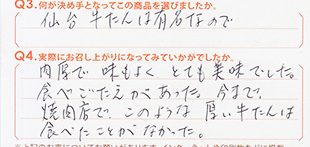 Q3.何が決め手となってこの商品を選びましたか。
仙台 牛たんは有名なので
Q4.実際にお召し上がりになってみていかがでしたか。
肉厚で 味もよく とても美味でした。
食べごたえがあった。今まで、
焼肉店で、このような 厚い牛たんは
食べたことがなかった。